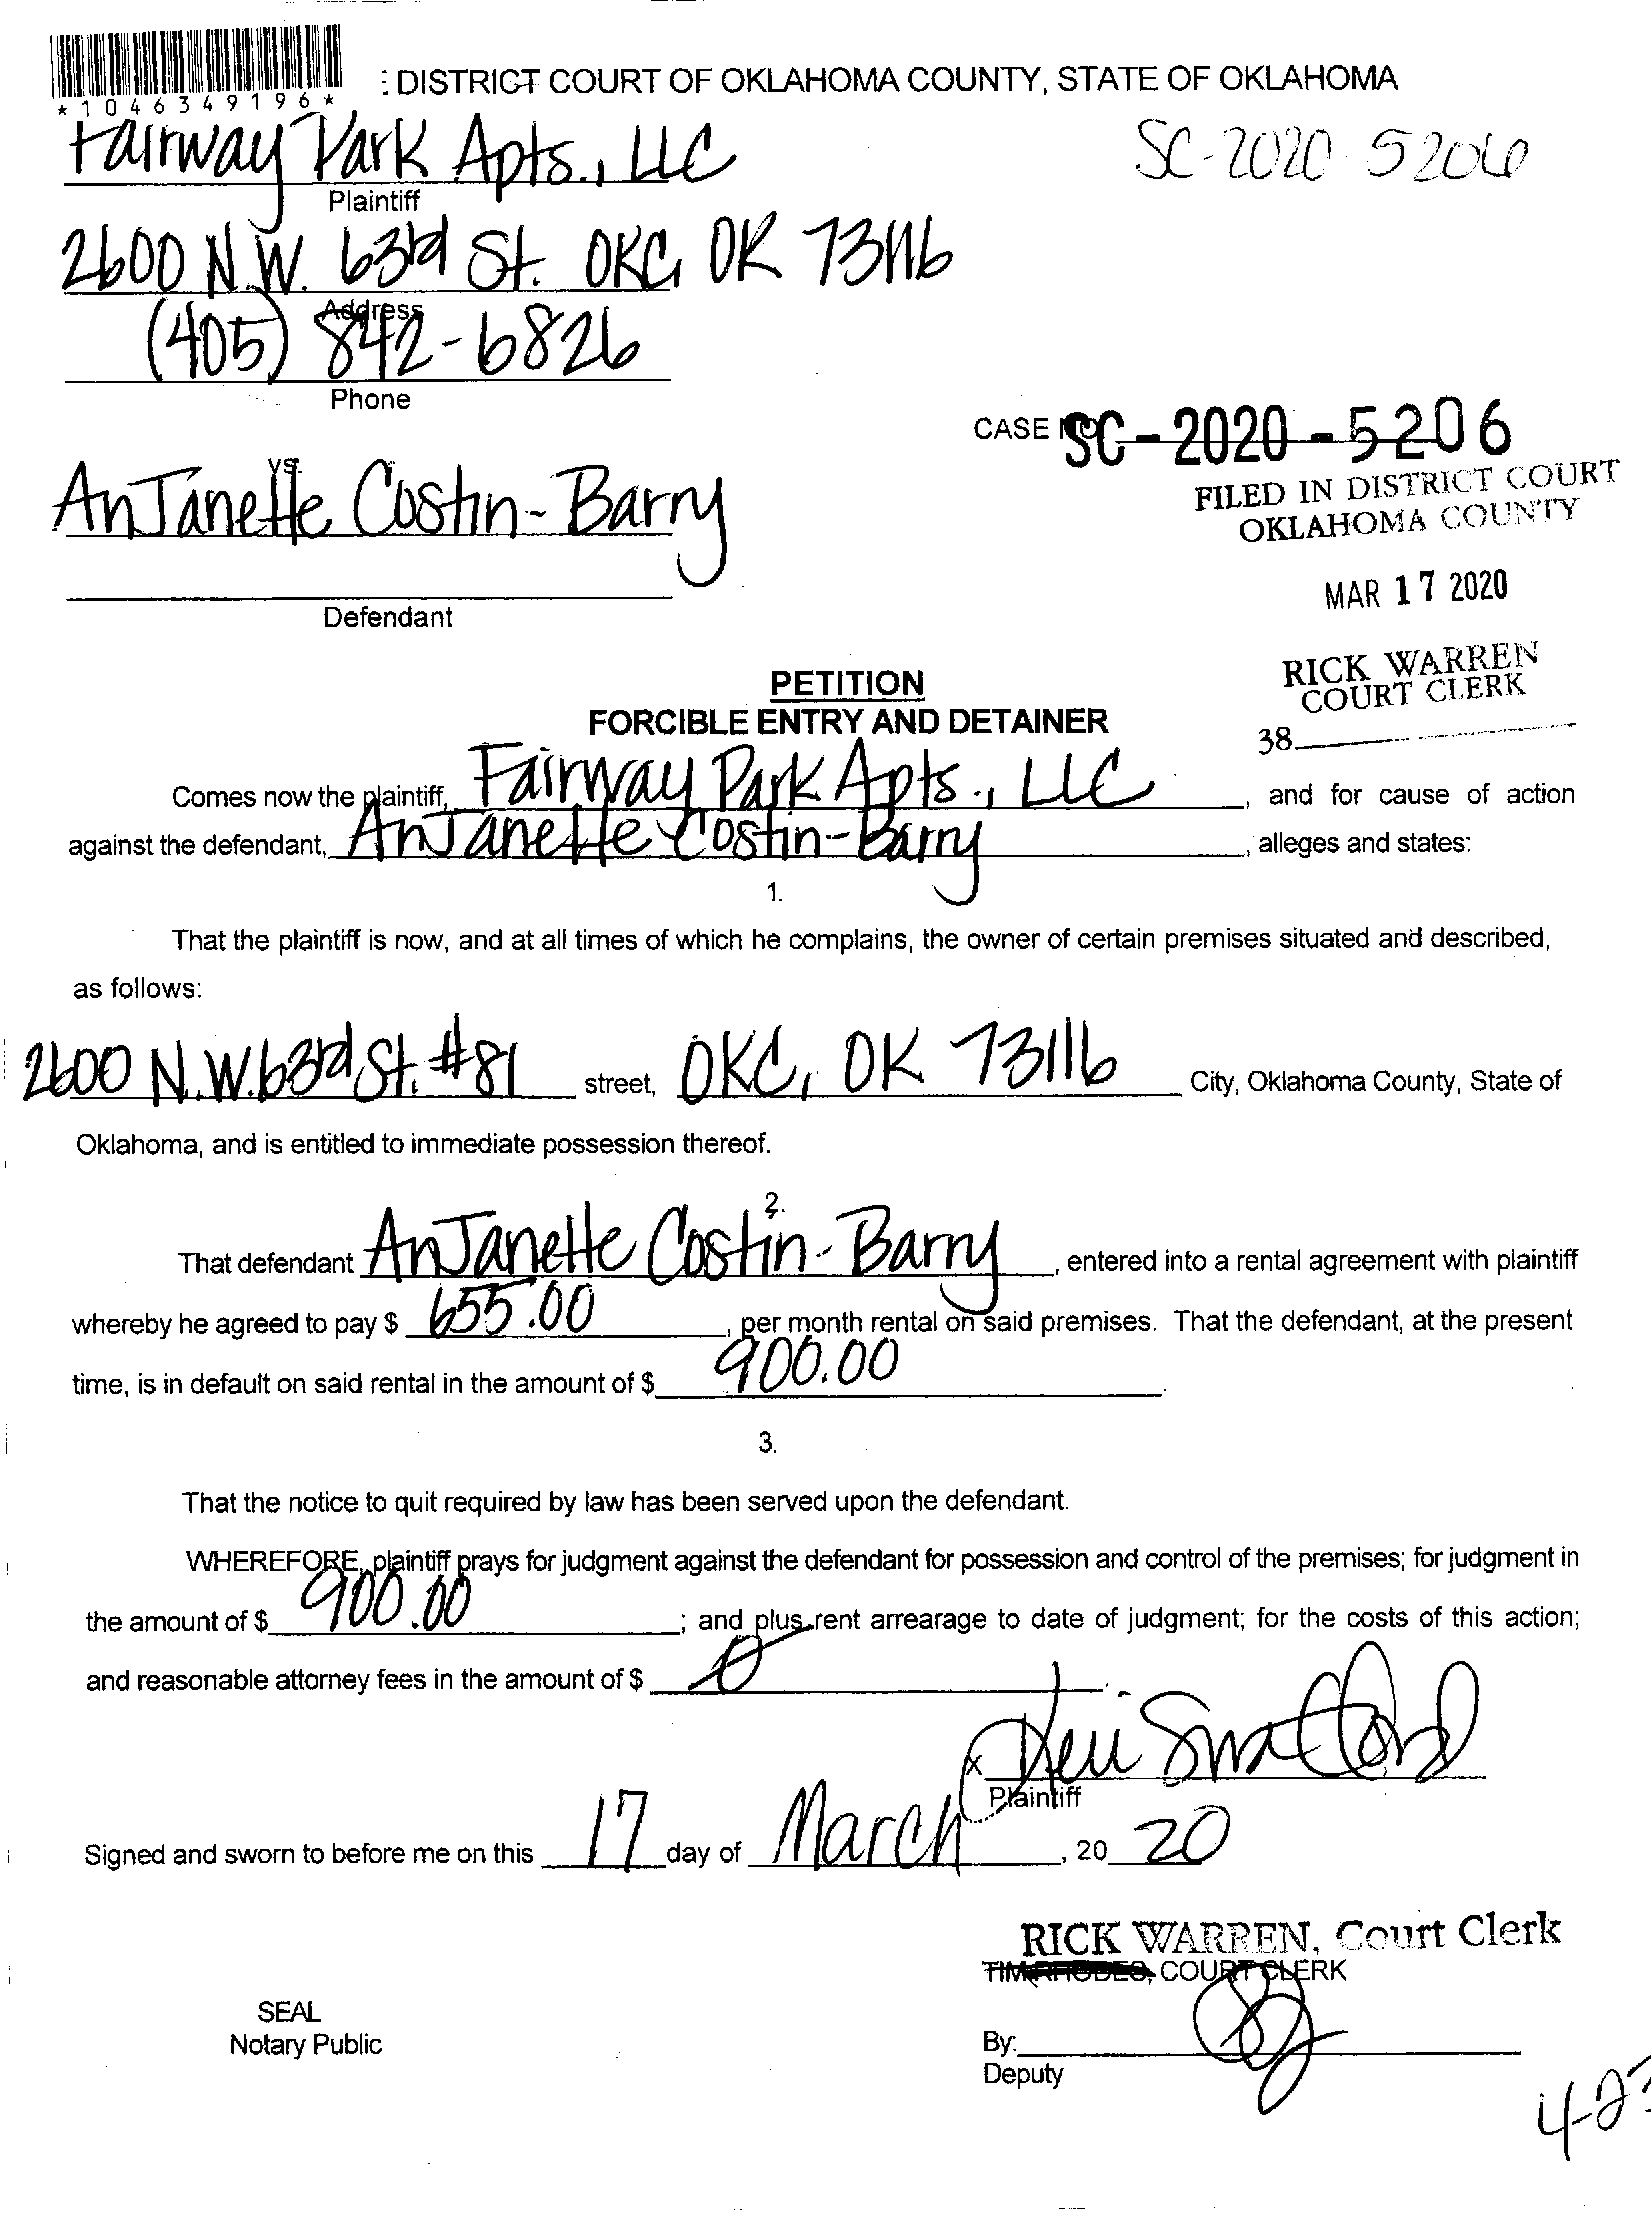 *1046349196*
: DISTRICT COURT OF OKLAHOMA COUNTY, STATE OF OKLAHOMA
Fairway Park Apts., LLC
SC-2020-5206
Plaintiff
2600 N.W. 63rd St. OKC, OK 73116
Address
(405) 842-6826
Phone
CASE NO. SC-2020-5206
FILED IN DISTRICT COURT
OKLAHOMA COUNTY
vs.
AnJanette Costin-Barry
MAR 17 2020
Defendant
RICK WARREN
COURT CLERK
38
PETITION
FORCIBLE ENTRY AND DETAINER
Comes now the plaintiff, Fairway Park Apts., LLC, and for cause of action
against the defendant, AnJanette Costin-Barry, alleges and states:
1.
That the plaintiff is now, and at all times of which he complains, the owner of certain premises situated and described,
as follows:
2600 N.W. 63rd St. #81 street, OKC, OK 73116 City, Oklahoma County, State of
Oklahoma, and is entitled to immediate possession thereof.
2.
That defendant AnJanette Costin-Barry, entered into a rental agreement with plaintiff
whereby he agreed to pay $ 655.00, per month rental on said premises. That the defendant, at the present
time, is in default on said rental in the amount of $ 900.00.
3.
That the notice to quit required by law has been served upon the defendant.
WHEREFORE, plaintiff prays for judgment against the defendant for possession and control of the premises; for judgment in
the amount of $ 900.00; and plus rent arrearage to date of judgment; for the costs of this action;
and reasonable attorney fees in the amount of $ 0.
x
Plaintiff
Signed and sworn to before me on this 17 day of March, 20 20
RICK WARREN, Court Clerk
TIM RHODES, COURT CLERK
SEAL
Notary Public
By:
Deputy